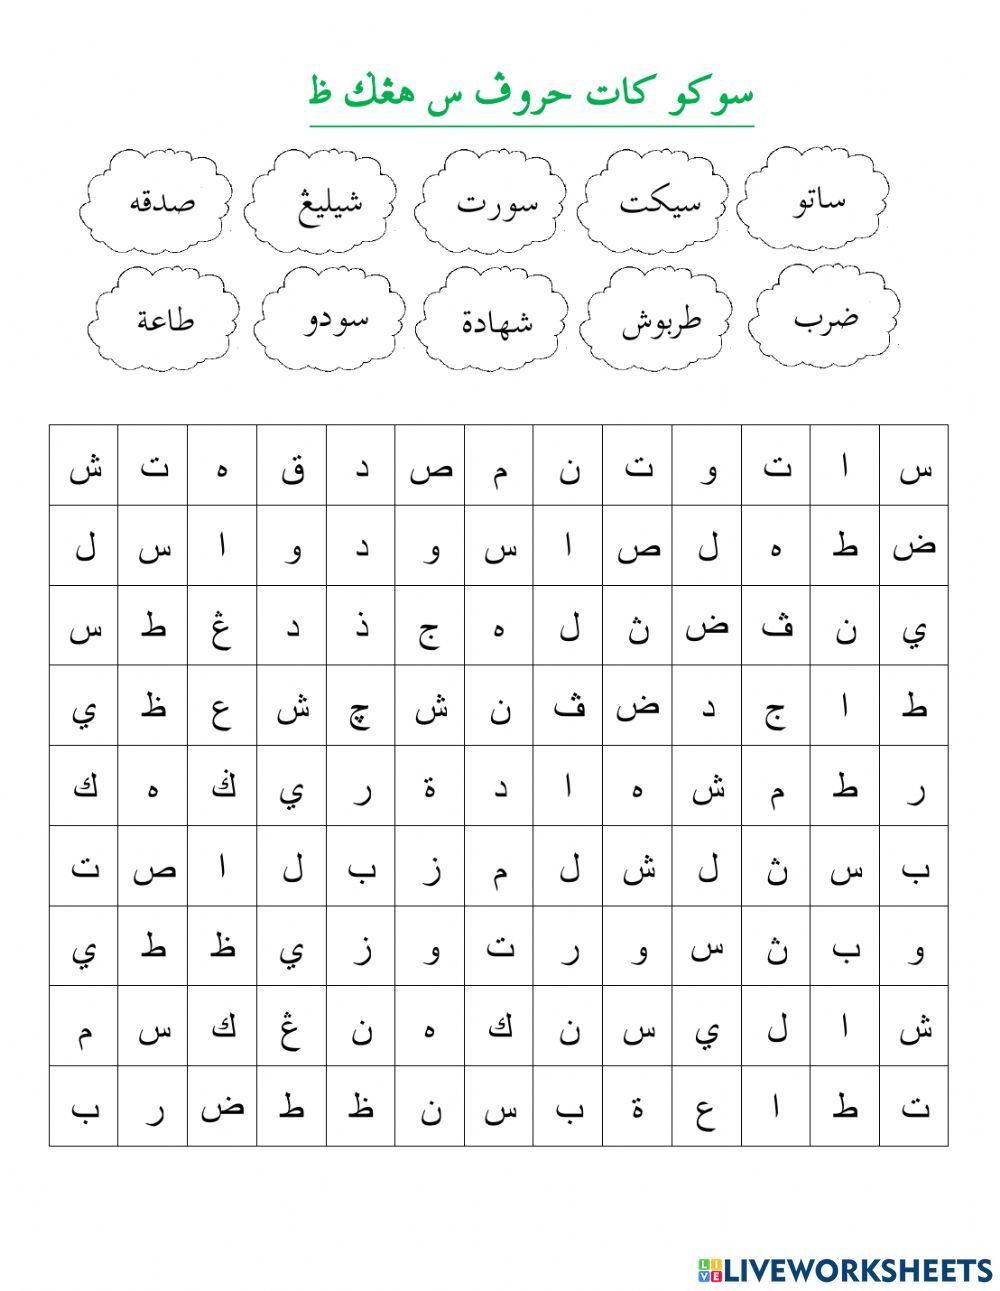 سوكو كات حروف س هڠݢ ظ
ساتو سيكت سورت شيليڠ صدقه
ضرب طربوش شهادة سودو طاعة
س ا ت و ت ن م ص د ق ه ت ش
ض ط ه ل ص ا س و د و ا س ل
ي ن ڤ ض ث ل ه ج ذ د غ ط س
ط ا ج د ض ڤ ن ش چ ش ع ظ ي
ر ط م ش ه ا د ة ر ي ڬ ه ك
ب س ث ل ش ل م ز ب ل ا ص ت
و ب ث س و ر ت و ز ي ظ ط ي
ش ا ل ي س ن ك ه ن غ ك س م
ت ط ا ع ة ب س ن ظ ط ض ر ب
LIVE LIVEWORKSHEETS